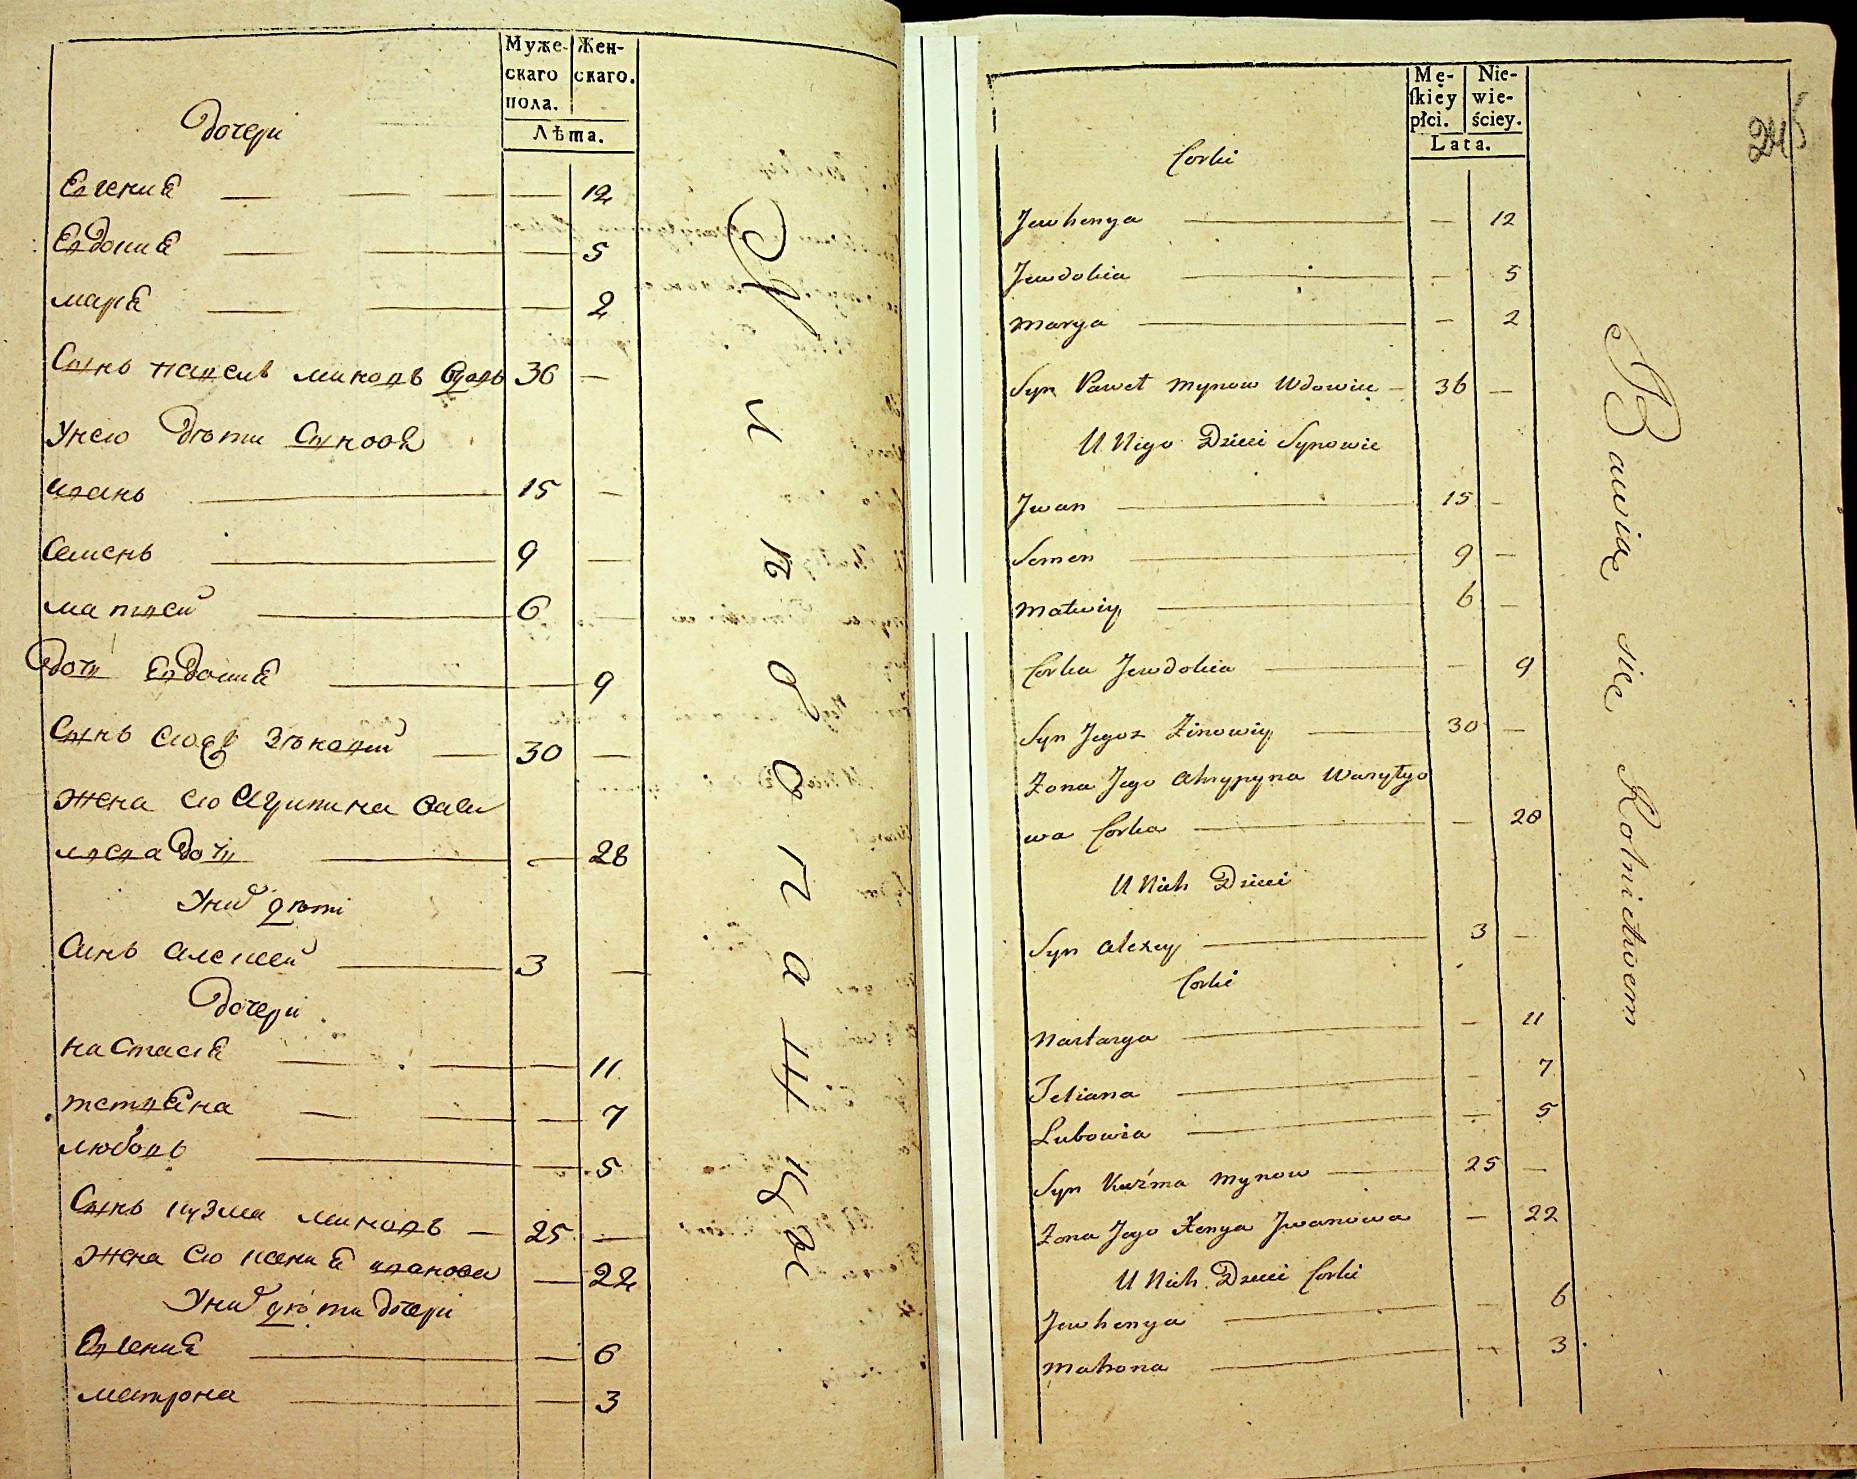 Муже-
скаго
пола.
Жен-
скаго.
Лѣта.
Дочери
Евгения — — 12
Евдокия — — 5
марья — — 2
Сынъ павелъ миновъ вдовъ 36 —
Унего дѣти Сыновья
иванъ — 15 —
Семенъ — 9 —
матвей — 6 —
Дочь Евдокия — — 9
Сынъ его Зѣновий — 30 —
жена его Агрипина васи
лева дочь — — 28
Уних дѣти
Синъ алексей — 3 —
Дочери
настасия — — 11
тетяна — — 7
любовь — — 5
Сынъ кузма миновъ — 25 —
жена его ксения иванова — 22
Уних дѣти дочери
Евгения — — 6
матрона — — 3
Mę-
ſkiey
płci.
Nie-
wie-
ściey.
Lata.
245
Corki
Jewhenya — — 12
Jewdokia — — 5
Marya — — 2
Syn Paweł Mynow Wdowiec — 36 —
U Niego Dzieci Synowie
Jwan — 15 —
Semen — 9 —
Matwiy — 6 —
Corka Jewdokia — — 9
Syn Jegoż Zinowiy — 30 —
Żona Jego Ahrypyna Wasyłyo
wa Corka — — 28
U Nich Dzieci
Syn Alexey — 3 —
Corki
Nastasya — — 11
Tetiana — — 7
Lubowia — — 5
Syn Kuźma Mynow — 25 —
Żona Jego Xenya Jwanowa — 22
U Nich Dzieci Corki
Jewhenya — — 6
Matrona — — 3
Bawią się Rolnictwem